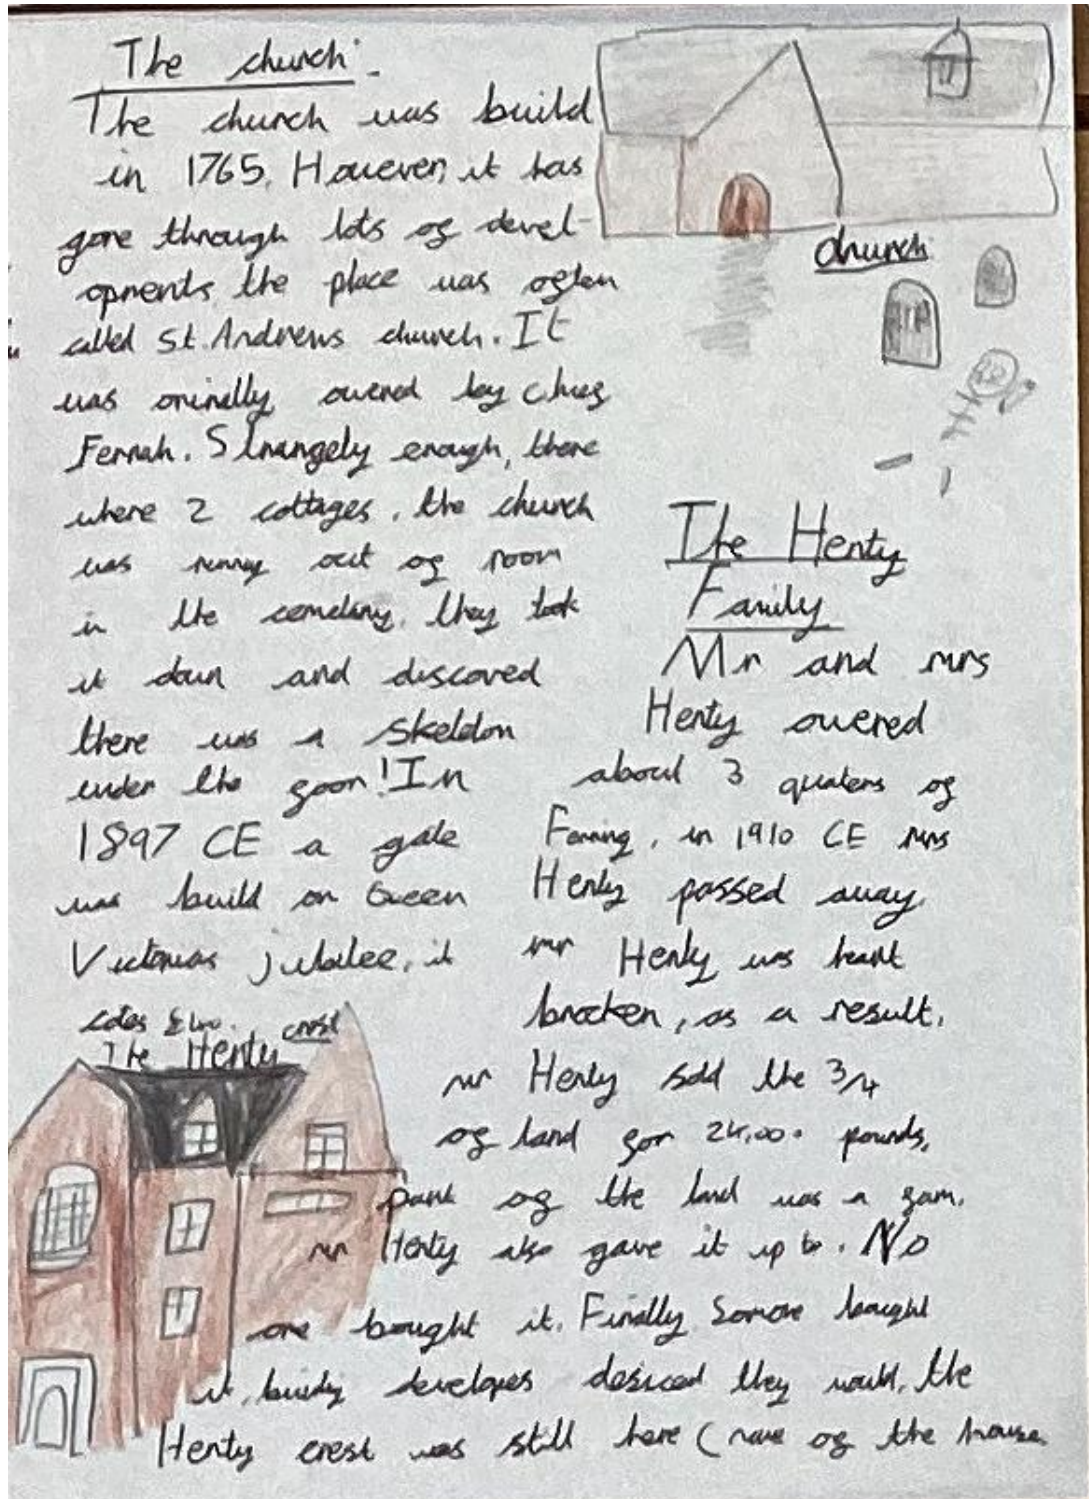 The church.
The church was build
in 1765. However, it has
gone through lots of devel-
opments, the place was often
called St. Andrews church. It
was orininelly owered by
Ferrah. Strangely enough, there
where 2 cottages, the church
was runny out of room
in the cemetary, they took
it down and discoved
there was a skeldon
under the floor! In
1897 CE a gate
was build on Queen
Victorias jubilee, it
church
The Henty
Family
Mr and mrs
Henty owered
about 3 quaters of
Ferring, in 1910 CE mrs
Henty passed away.
mr Henty was heart
brocken, as a result,
mr Henty sold the 3/4
of land for pounds,
part of the land was a farm,
mr Henty also gave it up to. No
one bought it. Finally Somone bought
it, developes they would, the
Henty crest was still here ( name of the house
The Henty crest